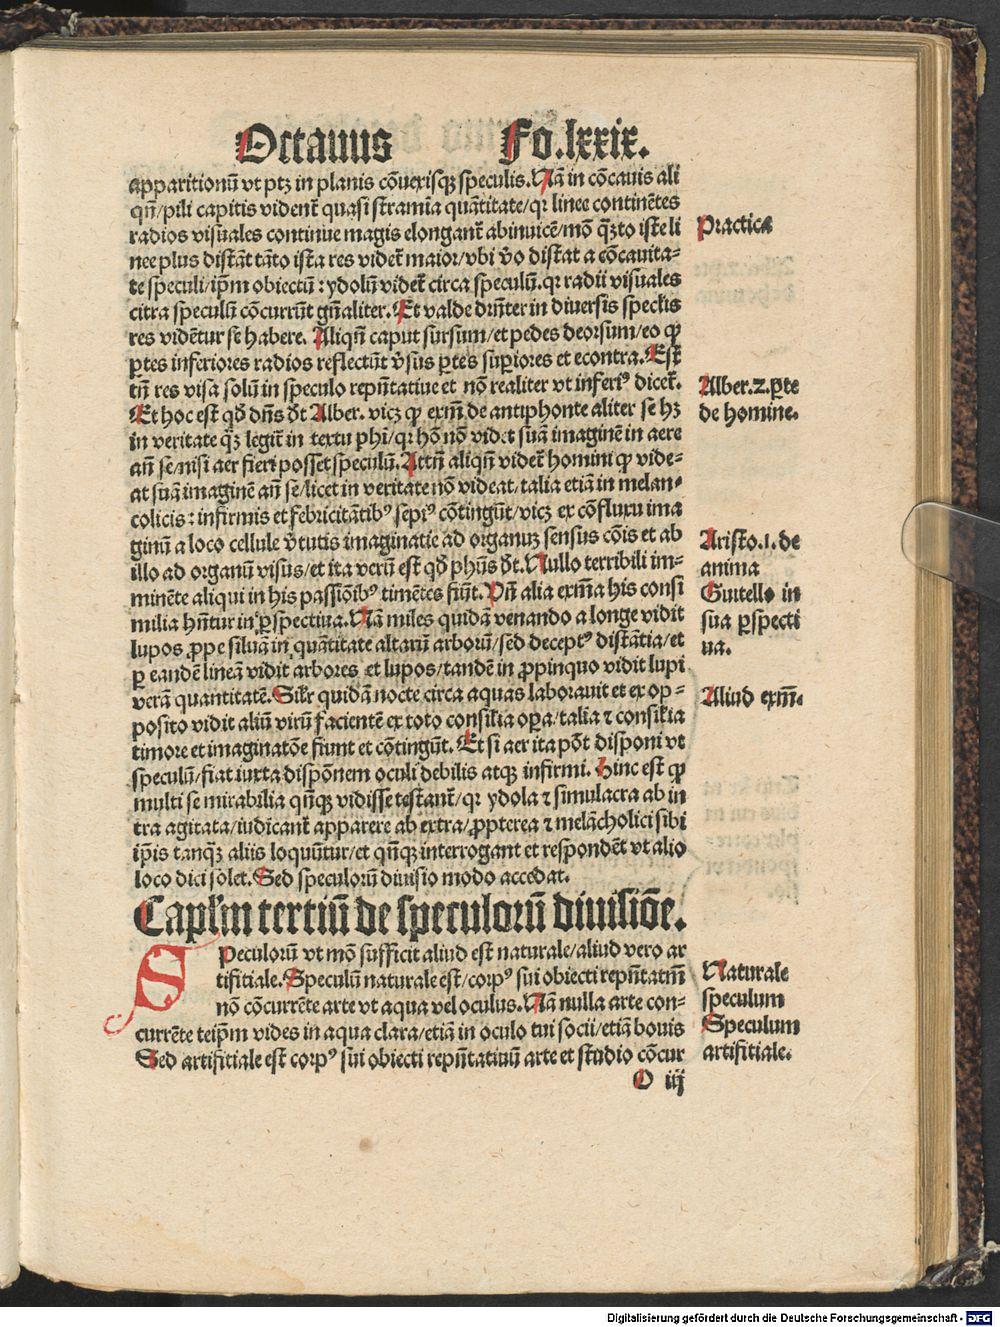 Octauus Fo.lxxix.
apparitionū vt ptꝫ in planis cōuexisqꝫ speculis. Nā in cōcauis ali
qn̄/pili capitis vident᷑ quasi stramīa quātitate/qꝛ linee continētes
radios visuales continue magis elongant᷑ abinuicē/mō qꝫto iste li
nee plus distāt tāto ista res videt᷑ maior/vbi v̄o distat a cōcauita-
te speculi/ip̄m obiectū: ydolū videt᷑ circa speculū. qꝛ radii visuales
citra speculū cōcurrūt gn̄aliter. Et valde drn̄ter in diuersis spect̄is
res vidētur se habere. Aliqn̄ caput sursum/et pedes deorsum/eo ꝙ
ꝑtes inferiores radios reflectūt v̄sus ꝑtes suꝑiores et econtra. Est
tn̄ res visa solū in speculo repn̄tatiue et nō realiter vt inferiꝰ dicet᷑.
Et hoc est qd̄ dn̄s d̄t Alber. vicꝫ ꝙ exm̄ de antiphonte aliter se hꝫ
in veritate qꝫ legit᷑ in textu ph̄i/qꝛ hō nō videt suā imaginē in aere
an̄ se/nisi aer fieri posset speculū. Attn̄ aliqn̄ videt᷑ homini ꝙ vide-
at suā imaginē an̄ se/licet in veritate nō videat/talia etiā in melan-
colicis: infirmis et febricitātibꝰ sepiꝰ cōtingūt/vicꝫ ex cōfluxu ima
ginū a loco cellule v̄tutis imaginatie ad organuꝫ sensus cōis et ab
illo ad organū visus/et ita verū est qd̄ ph̄us d̄t. Nullo terribili im-
minēte aliqui in his passiōibꝰ timētes fiūt. Pn̄t alia exm̄a his consi
milia hn̄tur in ꝑspectiua. Nā miles quidā venando a longe vidit
lupos ꝓpe siluā in quātitate altarū arborū/sed deceptꝰ distātia/et
ꝑ eandē lineā vidit arbores et lupos/tandē in ꝓpinquo vidit lupi
verā quantitatē. Silr̄ quidā nocte circa aquas laborauit et ex op-
posito vidit aliū virū facientē ex toto consilia oꝑa/talia ⁊ consilia
timore et imaginatōe fiunt et cōtingūt. Et si aer ita pōt disponi vt
speculū/fiat iuxta dispōnem oculi debilis atqꝫ infirmi. Hinc est ꝙ
multi se mirabilia qn̄qꝫ vidisse testant᷑/qꝛ ydola ⁊ simulacra ab in
tra agitata/iudicant᷑ apparere ab extra/ꝓpterea ⁊ melācholici sibi
ip̄is tanqꝫ aliis loquūtur/et qn̄qꝫ interrogant et respondēt vt alio
loco dici solet. Sed speculorū diuisio modo accedat.
Caplm̄ tertiū de speculorū diuisiōe.
SPeculorū vt mō sufficit aliud est naturale/aliud vero ar
tifitiale. Speculū naturale est/corpꝰ sui obiecti repn̄tatm̄
nō cōcurrēte arte vt aqua vel oculus. Nā nulla arte con-
currēte teip̄m vides in aqua clara/etiā in oculo tui socii/etiā bouis
Sed artifitiale est corpꝰ sui obiecti repn̄tatiuū arte et studio cōcur
O iij
Practica
Alber. 2. ꝑte
de homine.
Aristo. 1. de
anima
Guitello in
sua ꝑspecti
ua.
Aliud exm̄.
Naturale
speculum
Speculum
artifitiale.
Digitalisierung gefördert durch die Deutsche Forschungsgemeinschaft - DFG